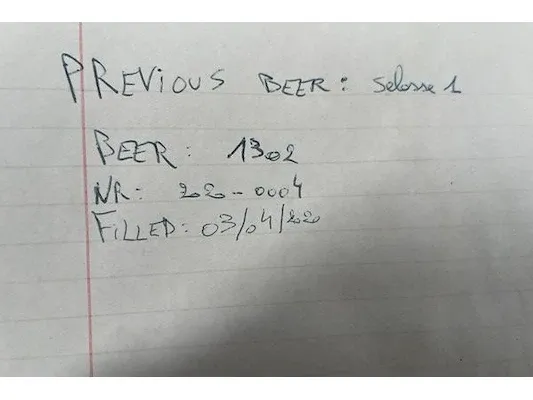 PREVIOUS BEER: Selosse 1
BEER: 1302
NR: 22-0004
FILLED: 03/04/2020